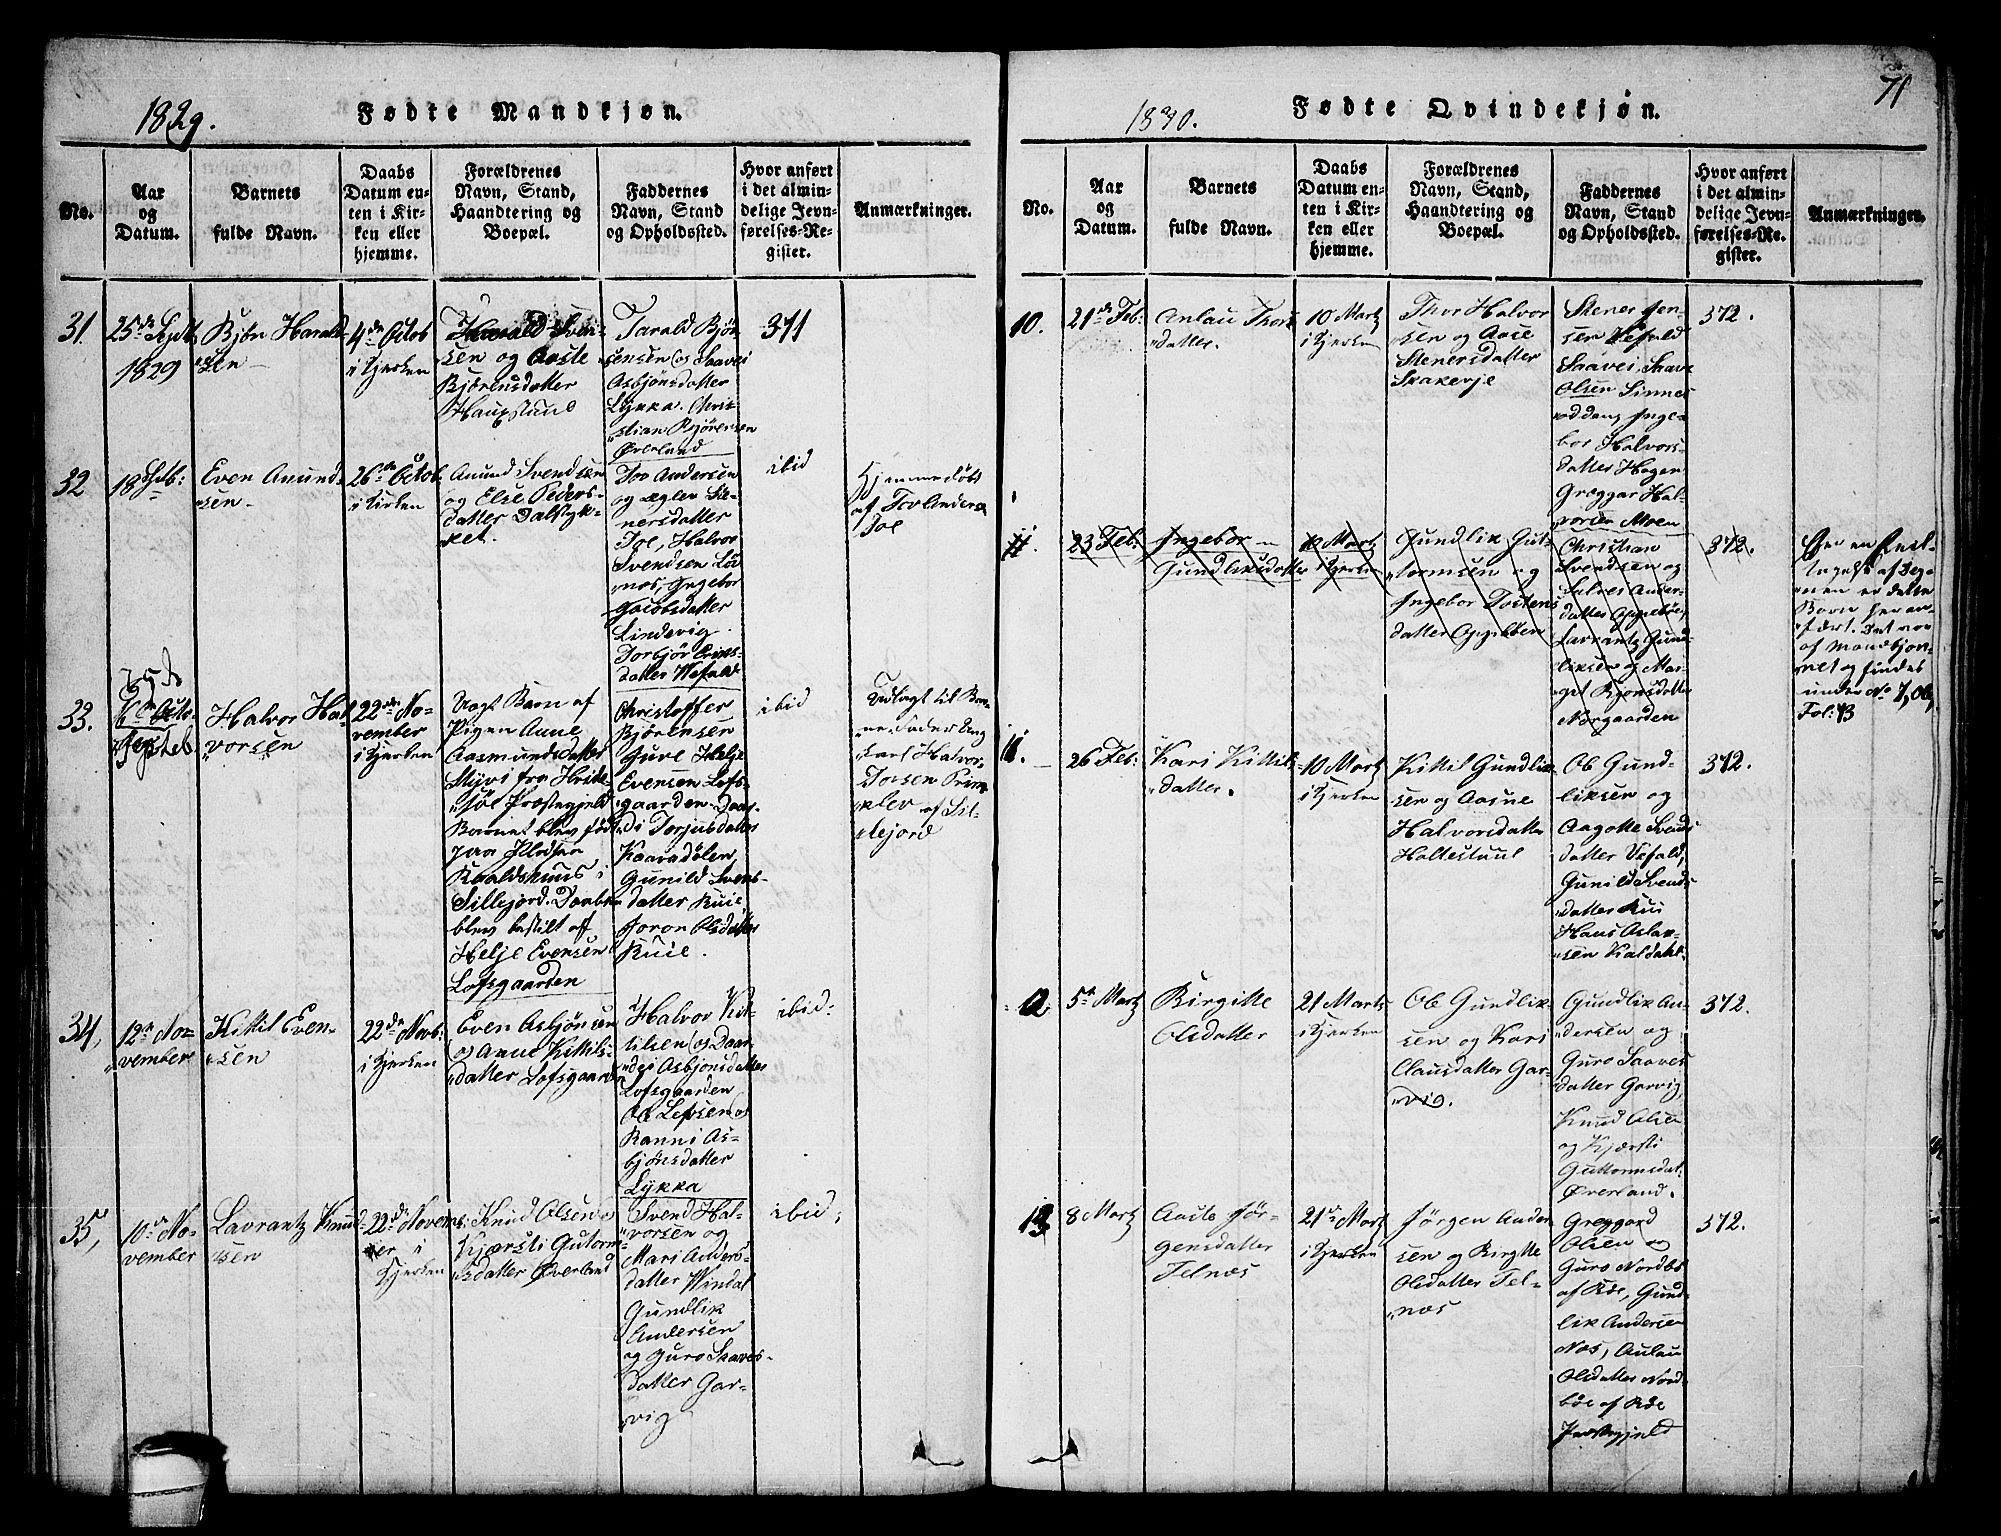 1829.
Fødte Mandkjøn.
No.
Aar
og
Datum.
Barnets
fulde Navn.
Daabs
Datum en-
ten i Kir-
ken eller
hjemme.
Forældrenes
Navn, Stand,
Haandtering og
Boepæl.
Faddernes
Navn, Stand
og Opholdssted.
Hvor anført
i det almin-
delige Jevn-
førelses-Re-
gister.
Anmærkninger.
31
25de Sept
1829
Bjön Harald-
sen
4de Octob
i Kjerken
Harald Sven-
sen og Aaste
Björensdatter
Haugstuud
Tarald Bjön
sensen og Saavei
Asbjönsdatter
Lykka. Chri-
stian Björensen
Øverland
371
32
18 Octb:
Even Amund-
sen
26de Octob.
i Kirken
Amund Svendsen
og Else Peders-
datter Dalstyk-
ket.
Tov Andersen
og Aglev Ste-
nersdatter
Joe, Halvor
Svendsen Löv-
naas, Ingebor
Jacobsdatter
Lindevig.
Torbjör Eriks-
datter Vefald
ibid
Hjemmedöbt
af Tov Anderse
Joe
33.
6te Octo-
Halvor Hal-
vorsen
22de No-
vember
i Kjerken
Uægt Barn af
Pigen Anne
Aasmundsdatter
Myri fra Hvide-
söe Præstegjeld
Barnet blev født
paa Pladsen
Roaldshuus i
Sillejord. Daaben
blev bestilt af
Helje Evensen
Lofsgaarden
Christoffer
Björensen
Juve Helje
Evensen Lofs-
gaarden. Daar-
di Torjusdatter
Kaavadölen,
Gunild Svens-
datter Kuie,
Joron Olsdatter
Kuie.
ibid
Udlagt til Bar-
ne-Fader Ung-
karl Halvor
Torsen
af Sil-
lejord
34,
12te No-
vember
Kittil Even-
sen
22de Novb:
i Kjerken
Even Asbjönsen
og Anne Kittils-
datter Lofsgaarden
Halvor Kit-
tilsen og Daar-
dei Asbjönsdatter
Lofsgaarden
Ole Lefsen og
Ranni As-
bjönsdatter
Lykka
ibid:
35,
10de No-
vember
Lavrantz Knud-
sen
22de Novem-
ber i
Kjerken
Knud Olsen
Kjærsti Gutorm-
sdatter Øverland
Svend Hal-
vorsen og
Mari Anders-
datter Windal
Gundlik
Andersen
og Guro Saaves-
datter Gar-
vig
ibid;
71
1830.
Fødte Qvindekjøn.
No.
Aar
og
Datum.
Barnets
fulde Navn.
Daabs
Datum en-
ten i Kir-
ken eller
hjemme.
Forældrenes
Navn, Stand,
Haandtering og
Boepæl.
Faddernes
Navn, Stand
og Opholdssted.
Hvor anført
i det almin-
delige Jevn-
førelses-Re-
gister.
Anmærkninger.
10.
21de Feb:
Anlau Thors
datter.
10 Martz
i Kjerken
Thor Halvor
sen og Aase
Stenersdatter
Skakerje
Stener Jen-
sen Vefald
Saavei, Saave
Olsen Sinnes
odden, Inge-
bor Halvors-
datter Hagen
Greggar Hal-
vorsen Moen
372.
11.
23 Feb:
Ingebor
Gundliksdatter
10 Martz
i Kjerken
Gundlik Gut-
tormsen og
Ingebor Tostens
datter Oppeböen
Christian
Svendsen og
Selves Anders
datter Oppeböe,
Lavrantz Gund-
liksen og Mar-
get Bjönsdatter
Norgaarden
372.
Per en Feil-
tagelse af Beg-
nen er dette
Barn her an-
fört. Det var
af Mandkjön-
net og findes
under No 7,
Fol: B
11.
26 Feb:
Kari Kittils-
datter.
10 Martz
i Kjerken
Kittil Gundlik-
sen og Aasne
Halvorsdatter
Haltestuul
Ole Gund-
liksen og
Aagotte Svends
datter Vefald,
Gunild Svends
datter Kui
Hans Aslak-
sen Kaldahl.
372.
12
5te Martz
Birgitte
Olsdatter
21 Marts
i Kjerken
Ole Gundlik-
sen og Kari
Clausdatter Gar-
vig.
Gundlik An-
dersen og
Guro Saaves
datter Garvig,
Knud Olsen
og Kjærsti
Guttormsdat:
Øverland.
372.
13
8 Martz
Aaste Jör-
gensdatter
Telnæs
21de Martz
i Kjerken
Jörgen Ander
sen og Birgitte
Olsdatter Tel-
næs
Greggard
Olsen og
Guro Nordbö
af Böe, Gund-
lik Andersen
Næs, Aulau
Olsdatter Nord-
böe af Böe
Præstegjeld
372.